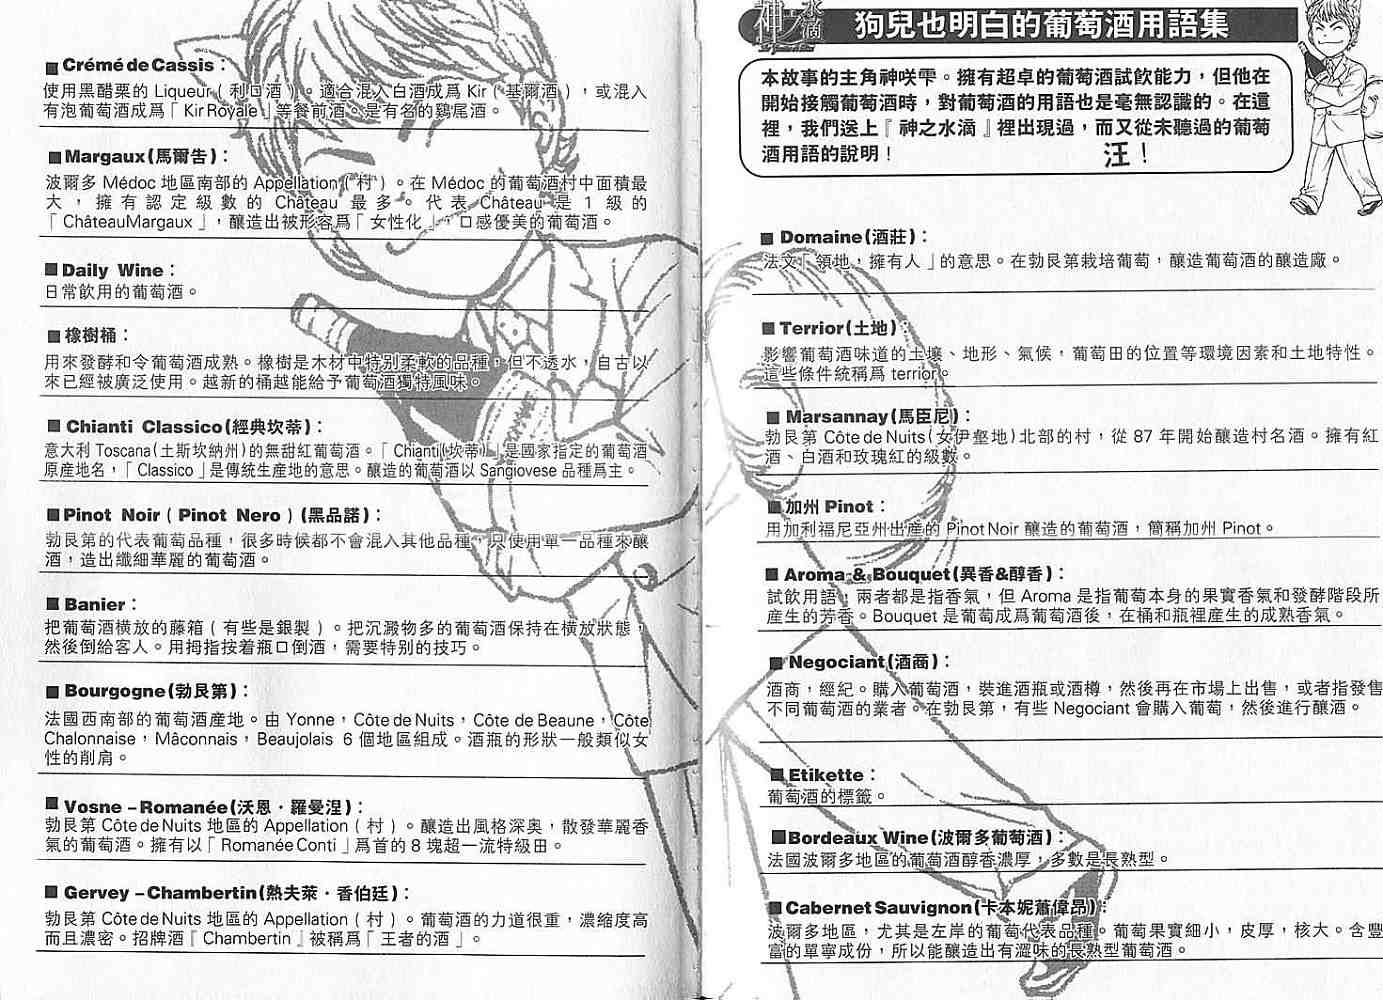 神之水滴
狗兒也明白的葡萄酒用語集
本故事的主角神咲雫。擁有超卓的葡萄酒試飲能力，但他在
開始接觸葡萄酒時，對葡萄酒的用語也是毫無認識的。在這
裡，我們送上『神之水滴』裡出現過，而又從未聽過的葡萄
酒用語的說明！
汪！
■ Domaine(酒莊)：
法文「領地，擁有人」的意思。在勃艮第栽培葡萄，釀造葡萄酒的釀造廠。
■ Terrior(土地)：
影響葡萄酒味道的土壤、地形、氣候，葡萄田的位置等環境因素和土地特性。
這些條件統稱爲 terrior。
■ Marsannay(馬臣尼)：
勃艮第 Côte de Nuits(女伊壑地)北部的村，從 87 年開始釀造村名酒。擁有紅
酒、白酒和玫瑰紅的級數。
■加州 Pinot：
用加利福尼亞州出産的 Pinot Noir 釀造的葡萄酒，簡稱加州 Pinot。
■ Aroma & Bouquet(異香&醇香)：
試飲用語，兩者都是指香氣，但 Aroma 是指葡萄本身的果實香氣和發酵階段所
産生的芳香。Bouquet 是葡萄成爲葡萄酒後，在桶和瓶裡産生的成熟香氣。
■ Negociant(酒商)：
酒商，經紀。購入葡萄酒，裝進酒瓶或酒樽，然後再在市場上出售，或者指發售
不同葡萄酒的業者。在勃艮第，有些 Negociant 會購入葡萄，然後進行釀酒。
■ Etikette：
葡萄酒的標籤。
■Bordeaux Wine(波爾多葡萄酒)：
法國波爾多地區的葡萄酒醇香濃厚，多數是長熟型。
■ Cabernet Sauvignon(卡本妮蕭偉昂)：
波爾多地區，尤其是左岸的葡萄代表品種。葡萄果實細小，皮厚，核大。含豐
富的單寧成份，所以能釀造出有澀味的長熟型葡萄酒。
■ Crémé de Cassis：
使用黑醋栗的 Liqueur（利口酒）。適合混入白酒成爲 Kir（基爾酒），或混入
有泡葡萄酒成爲「Kir Royale」等餐前酒。是有名的鷄尾酒。
■ Margaux(馬爾告)：
波爾多 Médoc 地區南部的 Appellation(村)。在 Médoc 的葡萄酒村中面積最
大，擁有認定級數的 Château 最多。代表 Château 是 1 級的
「ChâteauMargaux」，釀造出被形容爲「女性化」，口感優美的葡萄酒。
■ Daily Wine：
日常飲用的葡萄酒。
■ 橡樹桶：
用來發酵和令葡萄酒成熟。橡樹是木材中特別柔軟的品種，但不透水，自古以
來已經被廣泛使用。越新的桶越能給予葡萄酒獨特風味。
■ Chianti Classico(經典坎蒂)：
意大利 Toscana(土斯坎納州)的無甜紅葡萄酒。「Chianti(坎蒂)」是國家指定的葡萄酒
原産地名，「Classico」是傳統生産地的意思。釀造的葡萄酒以 Sangiovese 品種爲主。
■ Pinot Noir（Pinot Nero）(黑品諾)：
勃艮第的代表葡萄品種，很多時候都不會混入其他品種，只使用單一品種來釀
酒，造出纖細華麗的葡萄酒。
■ Banier：
把葡萄酒橫放的藤箱（有些是銀製）。把沉澱物多的葡萄酒保持在橫放狀態，
然後倒給客人。用拇指按着瓶口倒酒，需要特別的技巧。
■ Bourgogne(勃艮第)：
法國西南部的葡萄酒産地。由 Yonne，Côte de Nuits，Côte de Beaune，Côte
Chalonnaise，Mâconnais，Beaujolais 6 個地區組成。酒瓶的形狀一般類似女
性的削肩。
■ Vosne –Romanée(沃恩．羅曼涅)：
勃艮第 Côte de Nuits 地區的 Appellation（村）。釀造出風格深奥，散發華麗香
氣的葡萄酒。擁有以「Romanée Conti」爲首的 8 塊超一流特級田。
■ Gervey –Chambertin(熱夫萊．香伯廷)：
勃艮第 Côte de Nuits 地區的 Appellation（村）。葡萄酒的力道很重，濃縮度高
而且濃密。招牌酒『Chambertin』被稱爲「王者的酒」。